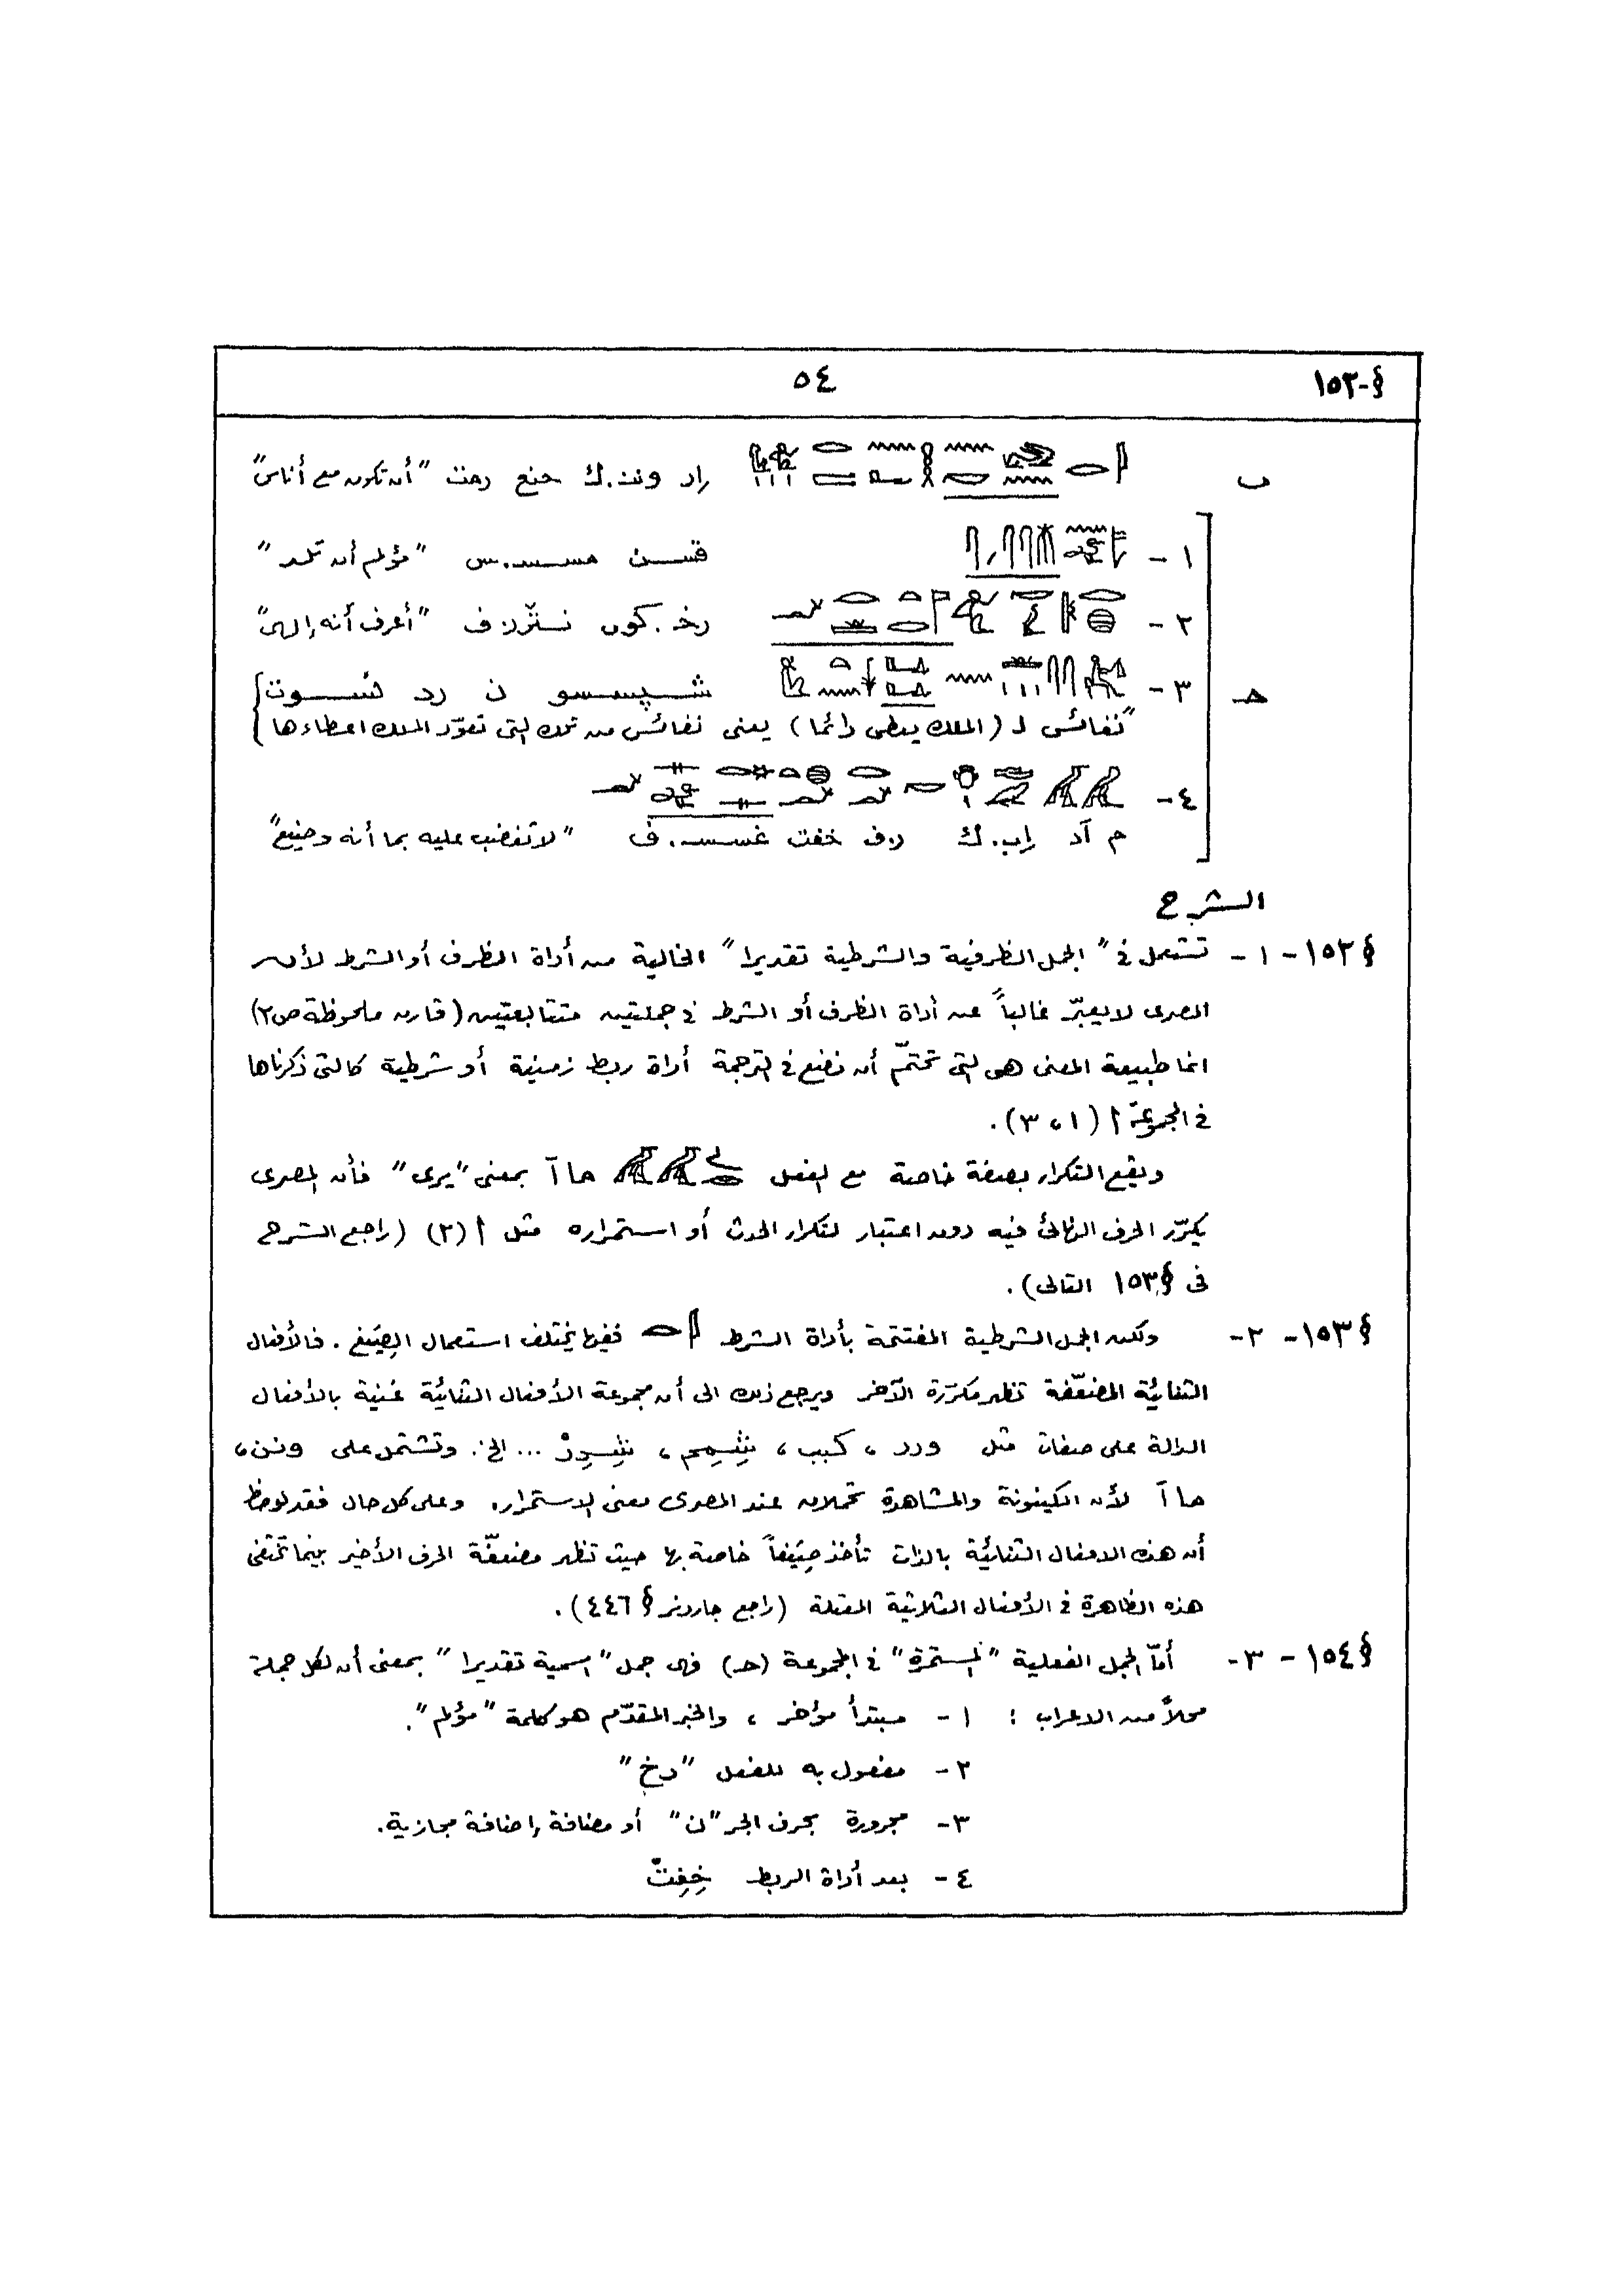 §-١٥٢ ٥٤
ب إر ونن.ك حنع رمث "أن تكون مع أناس"
١- قسن مسس.س "مؤلم أن تلد"
٢- رخ.كون نثر.ف "أعرف أنه إلهى"
حـ ٣- شپسسو ن دد نسوت
"نفائس لـ (الملك يعطى دائما) يعنى نفائس من تلك التى تعوّد الملك اعطاءها
٤-
م آد إب.ك ر.ف خفت غسس.ف "لا تغضب عليه بما أنه وضيع"
الشرح
§١٥٢-١- تستعمل فى "الجمل الظرفية والشرطية تقديرا" الخالية من أداة الظرف أو الشرط لأن
المصرى لا يعبّر غالباً عن أداة الظرف أو الشرط فى جملتين متتابعتين (قارن ملحوظة ص٢)
انما طبيعة المعنى هى التى تحتّم أن نضع فى الترجمة أداة ربط زمنية أو شرطية كالتى ذكرناها
فى المجموعة أ (١، ٣).
ويقع التكرار بصفة خاصة مع الفعل مآآ بمعنى "يرى" فأن المصرى
يكرّر الحرف النهائى فيه دون اعتبار لتكرار الحدث أو استمراره مثل أ (٢) (راجع الشرح
فى §١٥٣ التالى).
§١٥٣-٢- ولكن الجمل الشرطية المفتتحة بأداة الشرط ففيها يختلف استعمال الصِيَغ. فالأفعال
الثنائية المضعّفة تظهر مكرّرة الآخر ويرجع ذلك الى أن مجموعة الأفعال الثنائية غنية بالأفعال
الدالة على صفات مثل ورر، كبب، ... الخ. وتشتمل على ونن،
مآآ لأن الكينونة والمشاهدة تحملان عند المصرى معنى الاستمرار. وعلى كل حال فقد لوحظ
أن هذه الافعال الثنائية بالذات تأخذ صِيَغاً خاصة بها حيث تظهر مضعفّة الحرف الأخير بينما تختفى
هذه الظاهرة فى الأفعال الثلاثية المعتلة (راجع جاردنر §٤٤٦).
§١٥٤-٣- أمّا الجمل الفعلية "المستمرّة" فى المجموعة (حـ) فهى جمل "اسمية تقديرا" بمعنى أن لكل جملة
محلاً من الاعراب: ١- مبتدأ مؤخر، والخبر المقدّم هو كلمة "مؤلم".
٢- مفعول به للفعل "رخ"
٣- مجرورة بحرف الجر "ن" أو مضافة إضافة مجازية.
٤- بعد أداة الربط خِفِتْ